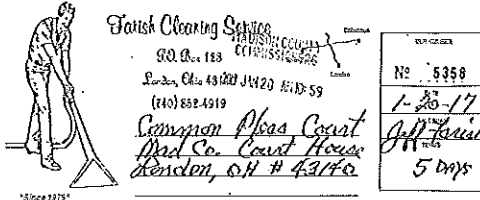 Farish Cleaning Service
P.O. Box 188
London, Ohio
(740) 852-4919
MADISON COUNTY
COMMISSIONERS
JAN 20 10:59
Columbus
London
Common Pleas Court
Mad Co. Court House
London, OH # 43140
"Since 1975"
Nº 5358
1-20-17
Jeff Farish
TERMS
5 Days